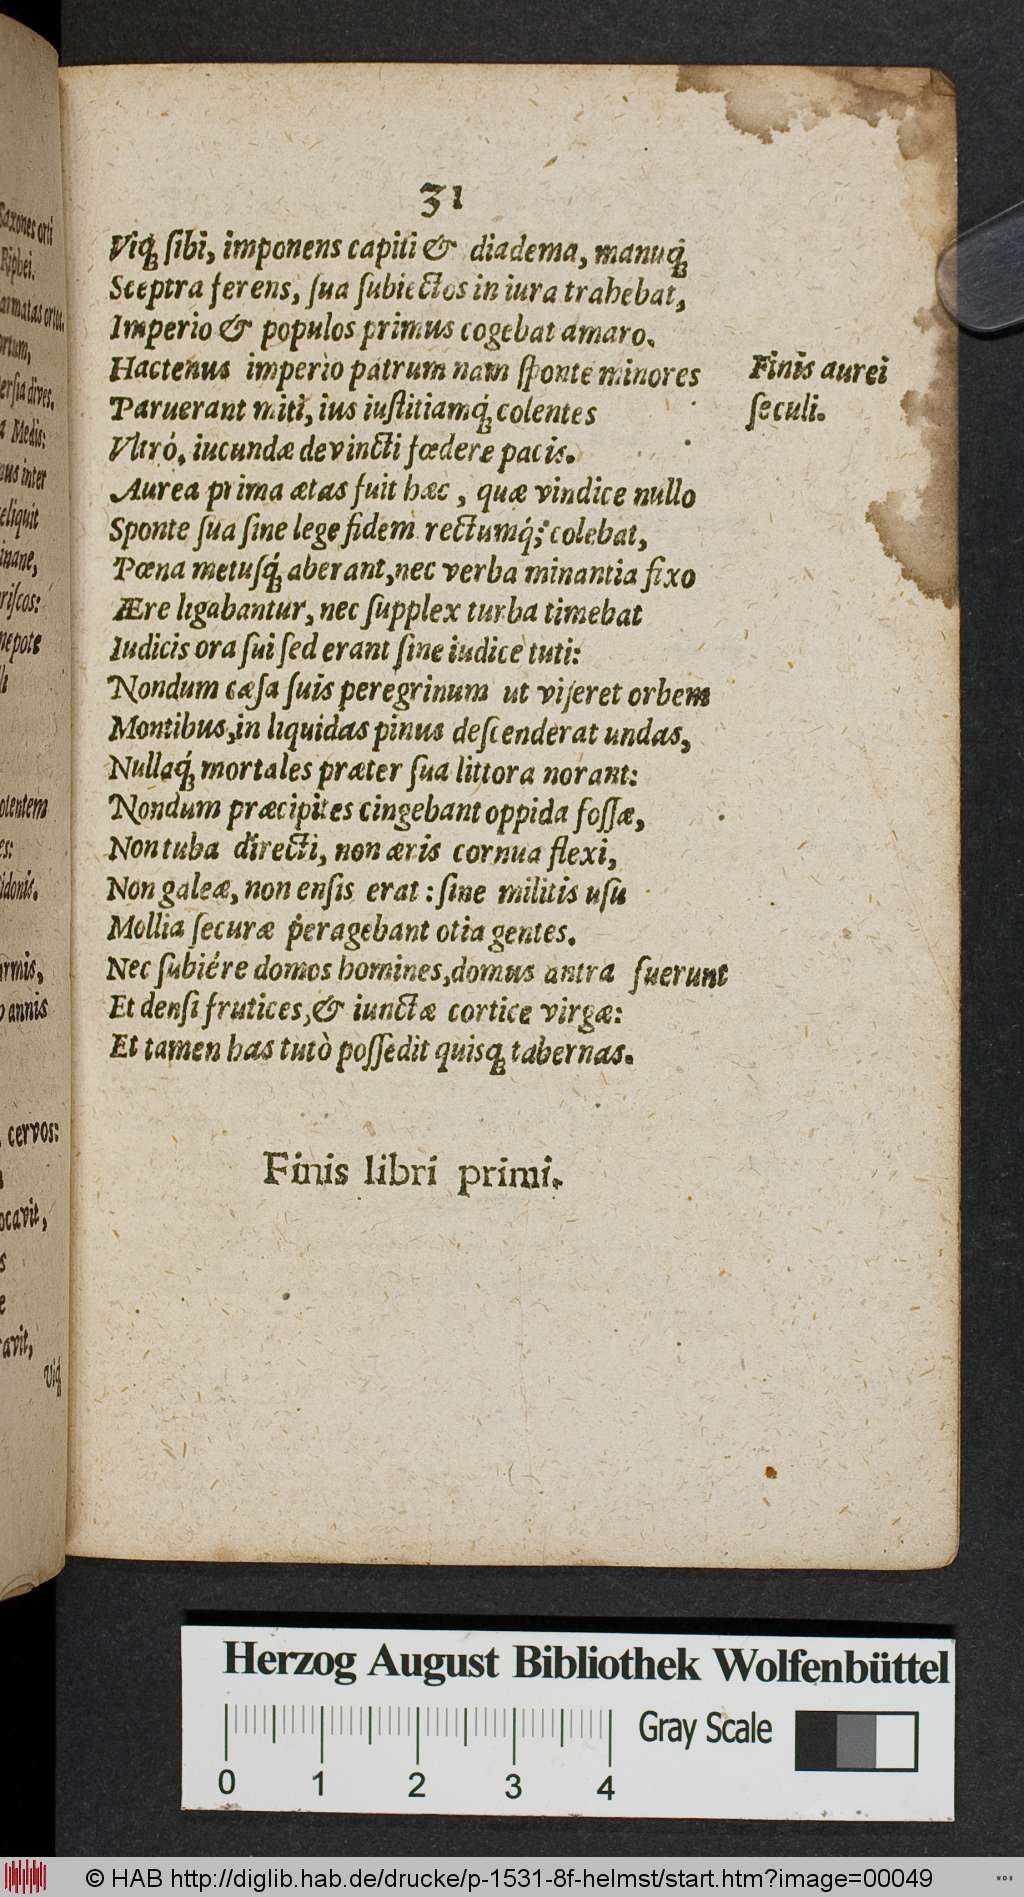 31
Viq́ꝫ ſibi, imponens capiti & diadema, manuq́ꝫ
Sceptra ferens, ſua ſubiectos in iura trahebat,
Imperio & populos primus cogebat amaro.
Hactenus imperio patrum nam ſponte minores
Paruerant miti, ius iuſtitiamq́ꝫ colentes
Vltró, iucundæ devincti fœdere pacis.
Finis aurei
ſeculi.
Aurea prima ætas fuit hæc, quæ vindice nullo
Sponte ſua ſine lege fidem rectumq́; colebat,
Pœna metuſq́ꝫ aberant, nec verba minantia fixo
Ære ligabantur, nec ſupplex turba timebat
Iudicis ora ſui ſed erant ſine iudice tuti:
Nondum cæſa ſuis peregrinum ut viſeret orbem
Montibus, in liquidas pinus deſcenderat undas,
Nullaq́ꝫ mortales præter ſua littora norant:
Nondum præcipites cingebant oppida foſſæ,
Non tuba directi, non æris cornua flexi,
Non galeæ, non enſis erat: ſine militis uſu
Mollia ſecuræ peragebant otia gentes.
Nec ſubiére domos homines, domus antra fuerunt
Et denſi frutices, & iunctæ cortice virgæ:
Et tamen has tutò poſſedit quisqꝫ tabernas.
Finis libri primi.
Saxones orti
Riphei.
armatas
ortum,
dives.
Medis:
inter
eliquit
inane,
priſcos:
nepote
potentem
es:
idonis.
armis,
annis
cervos:
ocavit,
avit,
Viq́ꝫ
Herzog August Bibliothek Wolfenbüttel
0 1 2 3 4
Gray Scale
© HAB http://diglib.hab.de/drucke/p-1531-8f-helmst/start.htm?image=00049